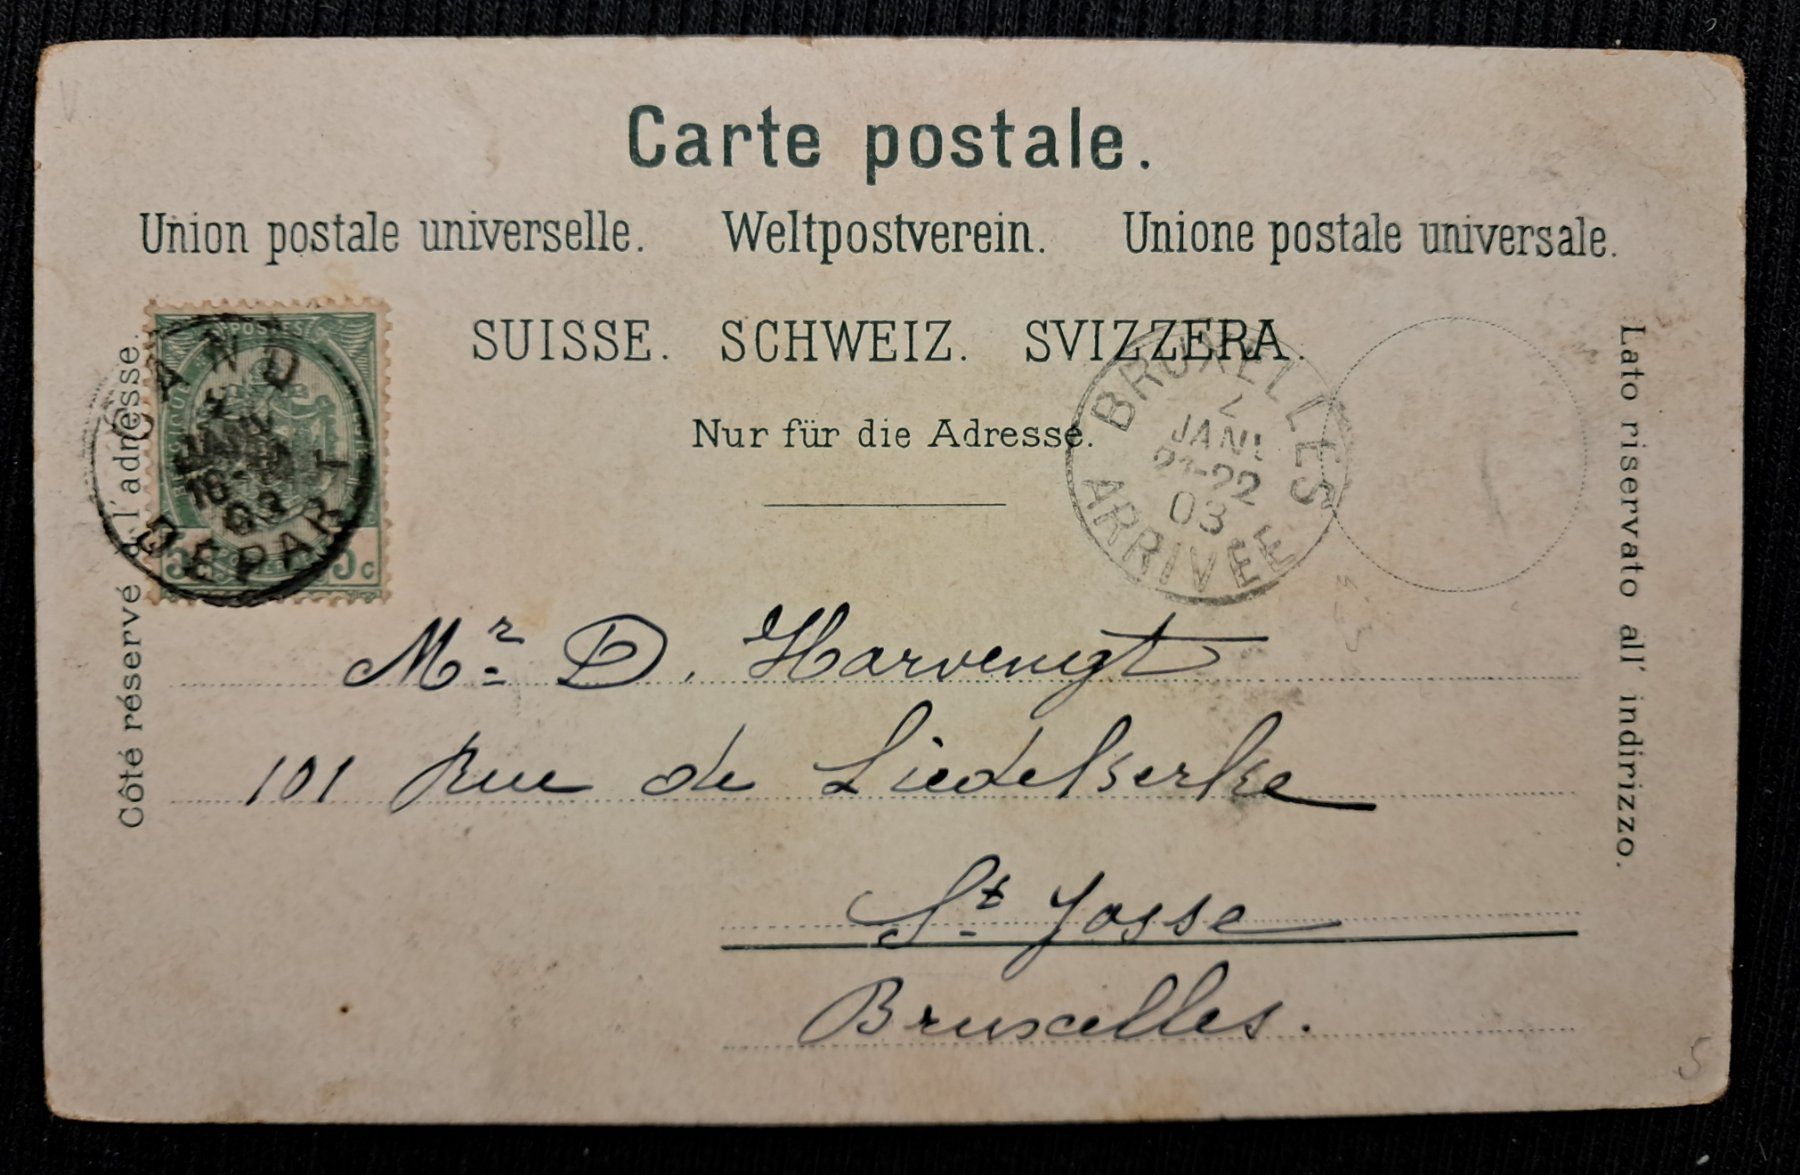 Carte postale.
Union postale universelle. Weltpostverein. Unione postale universale.
SUISSE. SCHWEIZ. SVIZZERA.
Nur für die Adresse.
Côté réservé à l'adresse.
Lato riservato all' indirizzo.
POSTES
5 5 c
GAND
JANV
18-19
03
DÉPART
BRUXELLES
2
JANV
21-22
03
ARRIVÉE
Mr D. Harvengt
101 Rue de Liedekerke
St Josse
Bruxelles.
5